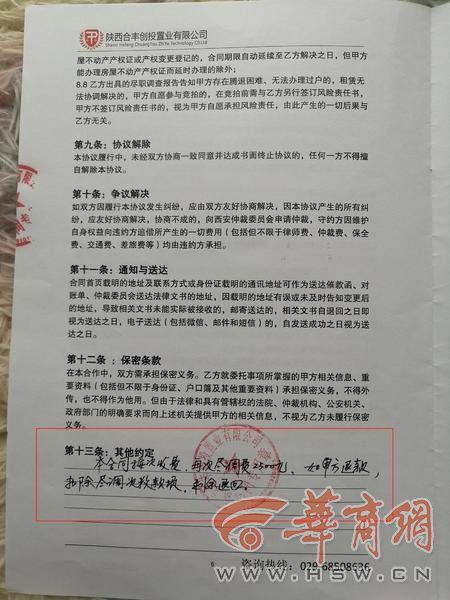 陕西合丰创投置业有限公司
Shanxi Hefeng Chuangtou ZhiYe Technology CO.Ltd
屋不动产产权证或产权变更登记的，合同期限自动延续至乙方解决之日，但甲方
能办理房屋不动产产权证而延时办理的除外；
8.8 乙方出具的尽职调查报告告知甲方存在腾退困难、无法办理过户的，租赁无
法协调解决的，甲方自愿参与竞拍的，在竞拍前需与乙方另行签订风险责任书，
甲方不签订风险责任书的，视为甲方自愿承担风险责任，由此产生的一切后果与
乙方无关。
第九条：协议解除
本协议履行中，未经双方协商一致同意并达成书面终止协议的，任何一方不得擅
自解除本协议。
第十条：争议解决
如双方因履行本协议发生纠纷，应由双方友好协商解决，因本协议产生的所有纠
纷，应友好协商解决，协商不成的，向西安仲裁委员会申请仲裁，守约方因维护
自身权益向违约方追偿所产生的一切费用（包括但不限于律师费、仲裁费、保全
费、交通费、差旅费等）均由违约方承担。
第十一条：通知与送达
合同首页载明的地址及联系方式或身份证载明的通讯地址可作为送达催款函、对
账单、仲裁委员会送达法律文书的地址，因载明的地址有误或未及时告知变更后
的地址，导致相关文书未能实际被接收的，邮寄送达的，相关文书自退回之日即
视为送达之日，电子送达（包括微信、邮件和短信）的，自发送成功之日视为送
达之日。
第十二条：保密条款
在本合作中，双方需承担保密义务。乙方就委托事项所掌握的甲方相关信息、重
要资料（包括但不限于身份证、户口簿及其他重要资料）承担保密义务，不得外
传，也不得作为他用。但由于法律和具有管辖权的法院、仲裁机构、公安机关、
政府部门的明确要求而向上述机关提供甲方的相关信息，不视为乙方未履行保密
义务。
第十三条：其他约定
本合同按次收费，每次尽调费2500元、如甲方退款，
扣除尽调次数款项，扣除退回。
6
咨询热线：029-68508636
华商网
WWW.HSW.CN